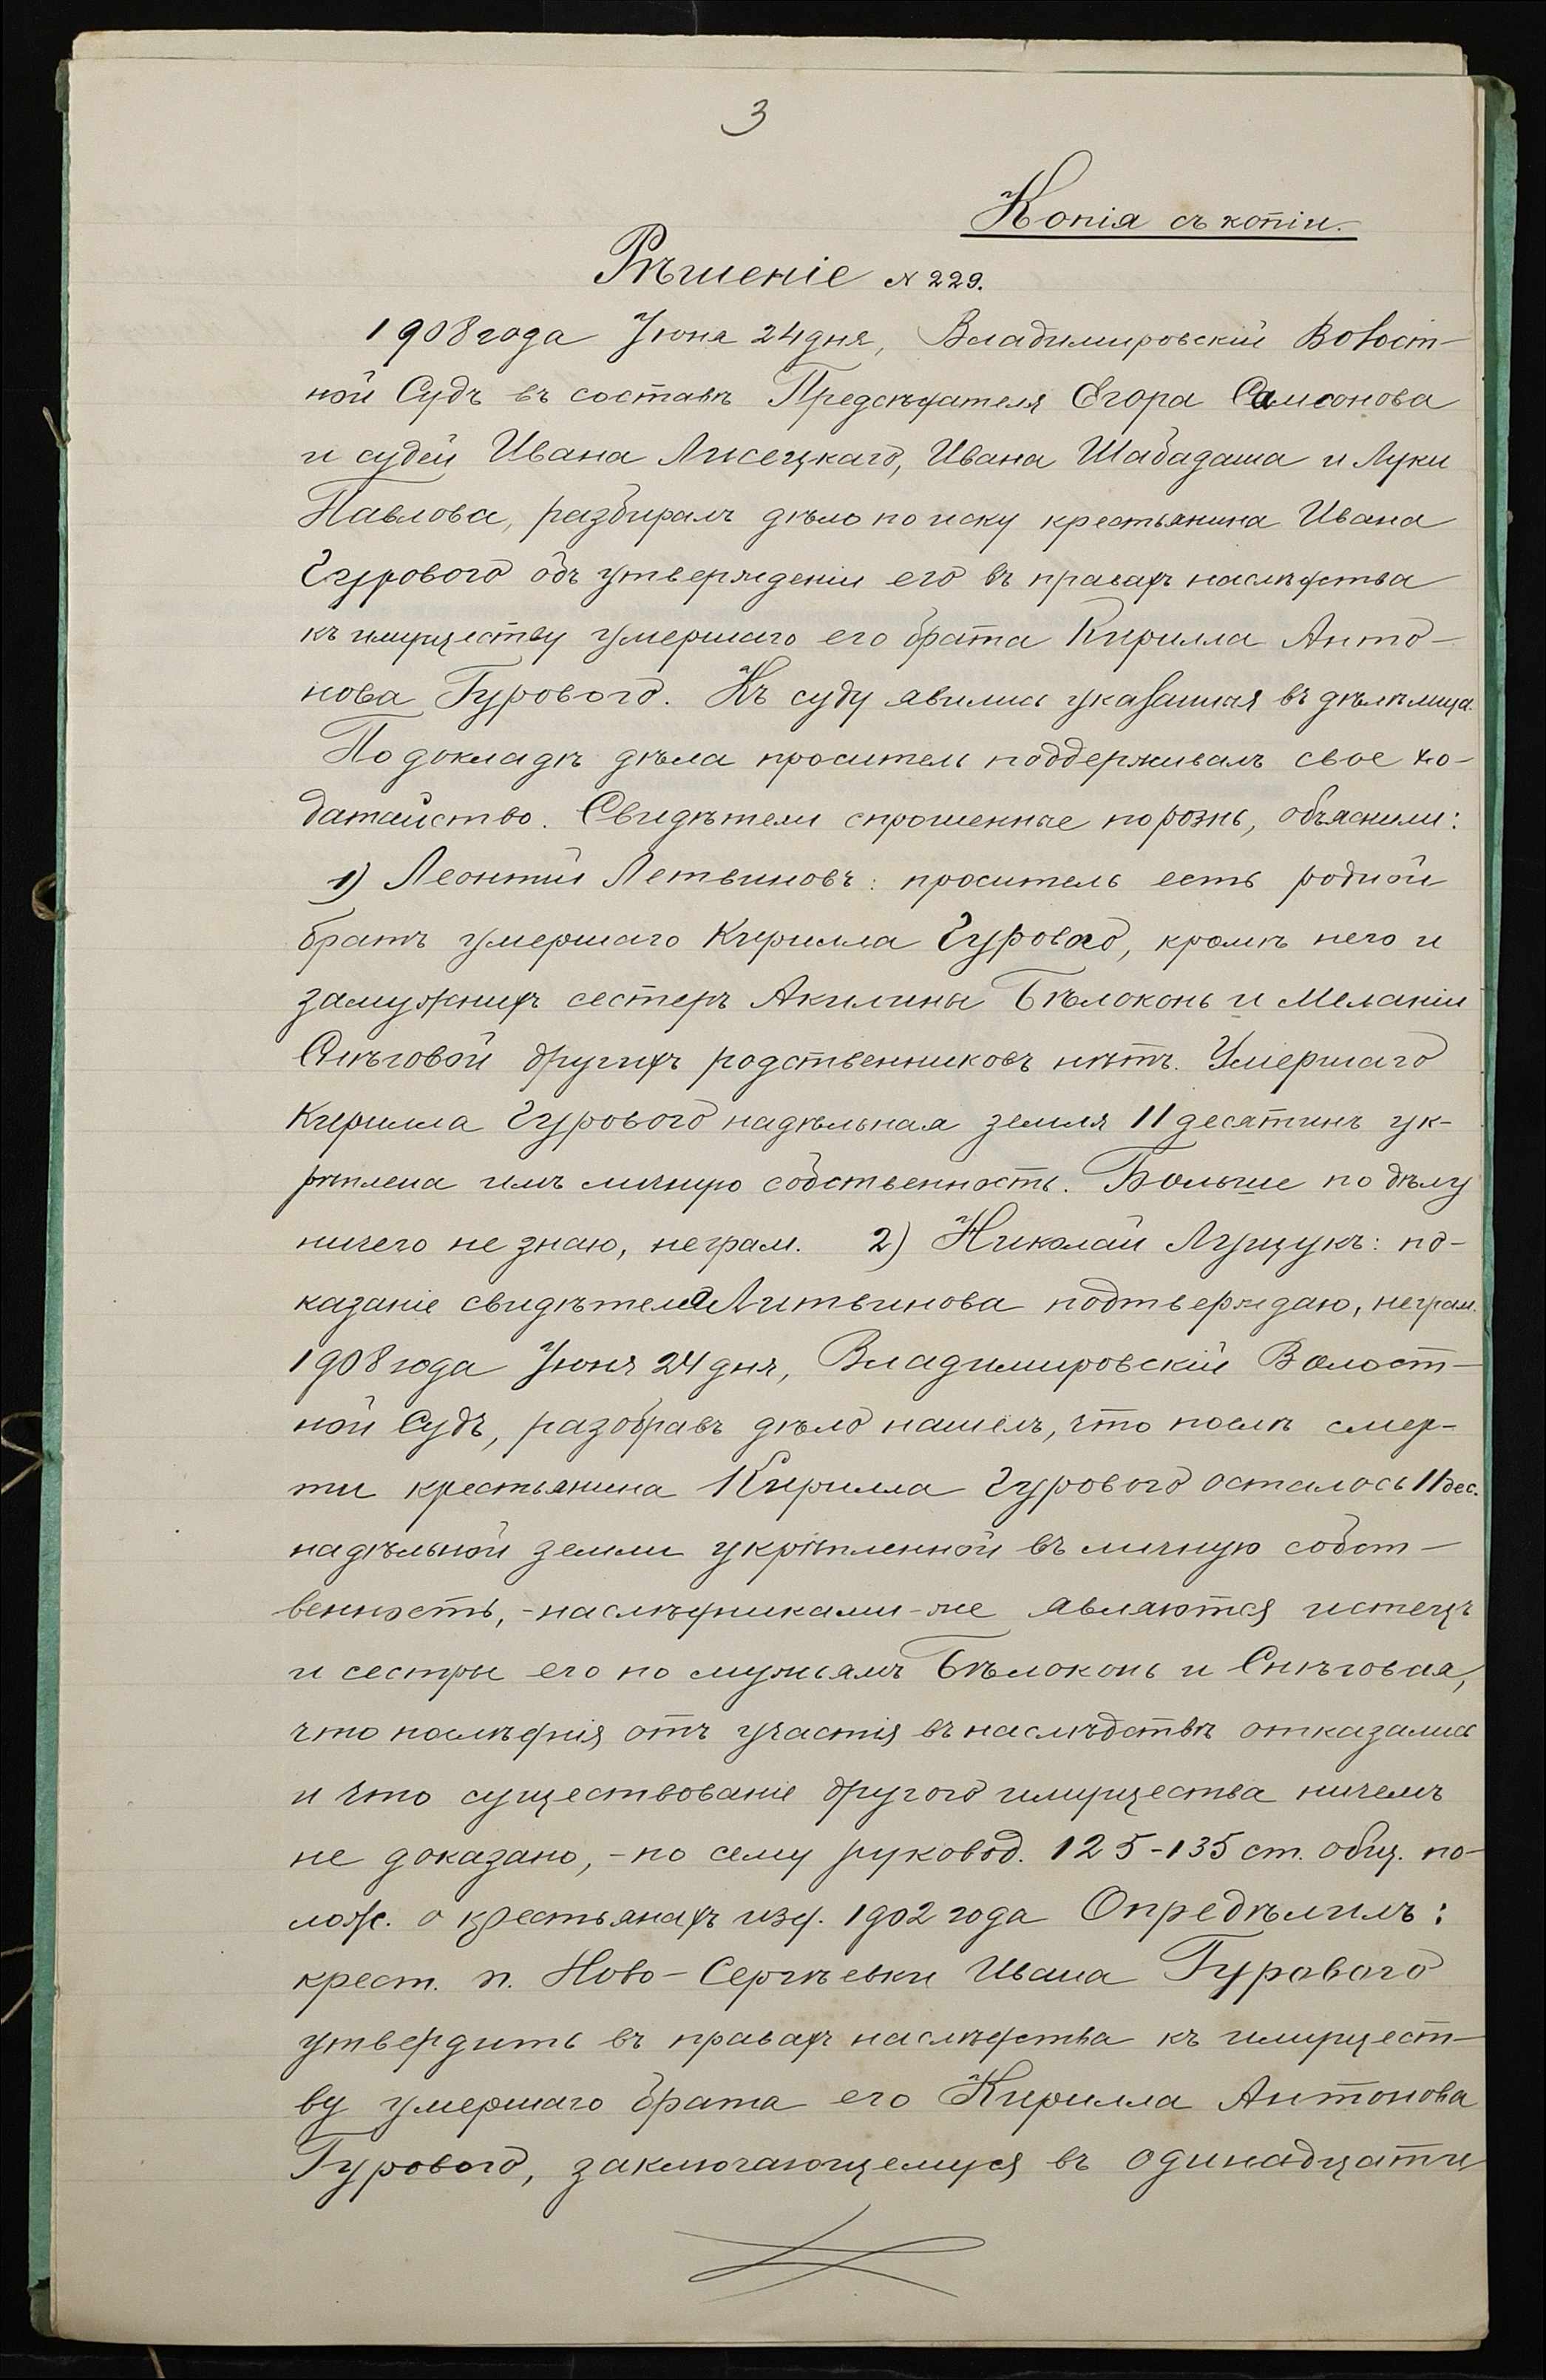 3
Копія съ копіи.
Рѣшеніе № 229.
1908 года Іюня 24 дня, Владимировскій Волост-
ной Судъ въ составѣ Предсѣдателя Егора Самсонова
и судей Ивана Лисецкаго, Ивана Шабадаша и Луки
Павлова, разбиралъ дѣло по иску крестьянина Ивана
Гурового объ утвержденіи его въ правахъ наслѣдства
къ имуществу умершаго его брата Кирилла Анто-
нова Гурового. Къ суду явились указанныя въ дѣлѣ лица.
По докладѣ дѣла проситель поддерживалъ свое хо-
датайство. Свидѣтели спрошенные порознь, объяснили:
1) Леонтій Летвиновъ: проситель есть родной
братъ умершаго Кирилла Гурового, кромѣ него и
замужнихъ сестеръ Акилины Бѣлоконь и Меланіи
Снѣговой другихъ родственниковъ нѣтъ. Умершаго
Кирилла Гурового надѣльная земля 11 десятинъ ук-
рѣплена имъ личную собственность. Больше по дѣлу
ничего не знаю, неграм. 2) Николай Лущукъ: по-
казаніе свидѣтеля Литвинова подтверждаю, неграм.
1908 года Іюня 24 дня, Владимировскій Волост-
ной Судъ, разобравъ дѣло нашелъ, что послѣ смер-
ти крестьянина Кирилла Гурового осталось 11 дес.
надѣльной земли укрѣпленной въ личную собст-
венность, - наслѣдниками-же являются истецъ
и сестры его по мужьямъ Бѣлоконь и Снѣговая,
что послѣднія отъ участія въ наслѣдствѣ отказались
и что существованіе другого имущества ничемъ
не доказано, - по сему руковод. 125-135 ст. общ. по-
лож. о крестьянахъ изд. 1902 года Опредѣлилъ:
крест. п. Ново-Сергѣевки Ивана Гурового
утвердить въ правахъ наслѣдства къ имущест-
ву умершаго брата его Кирилла Антонова
Гурового, заключающемуся въ одинадцати